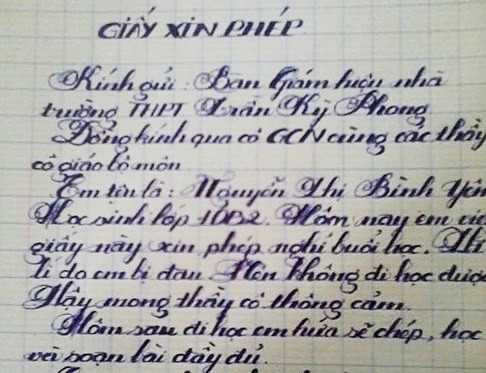 GIẤY XIN PHÉP
Kính gửi : Ban Giám hiệu nhà
trường THPT Trần Kỳ Phong
Đồng kính qua cô GCN cùng các thầy
cô giáo bộ môn
Em tên là : Nguyễn Thị Bình Yên
Học sinh lớp 10B2. Hôm nay em viế
giấy này xin phép nghỉ buổi học. Th
lí do em bị đau. Nên không đi học đượ
Mong thầy cô thông cảm.
Hôm sau đi học em hứa sẽ chép, học
và soạn bài đầy đủ.